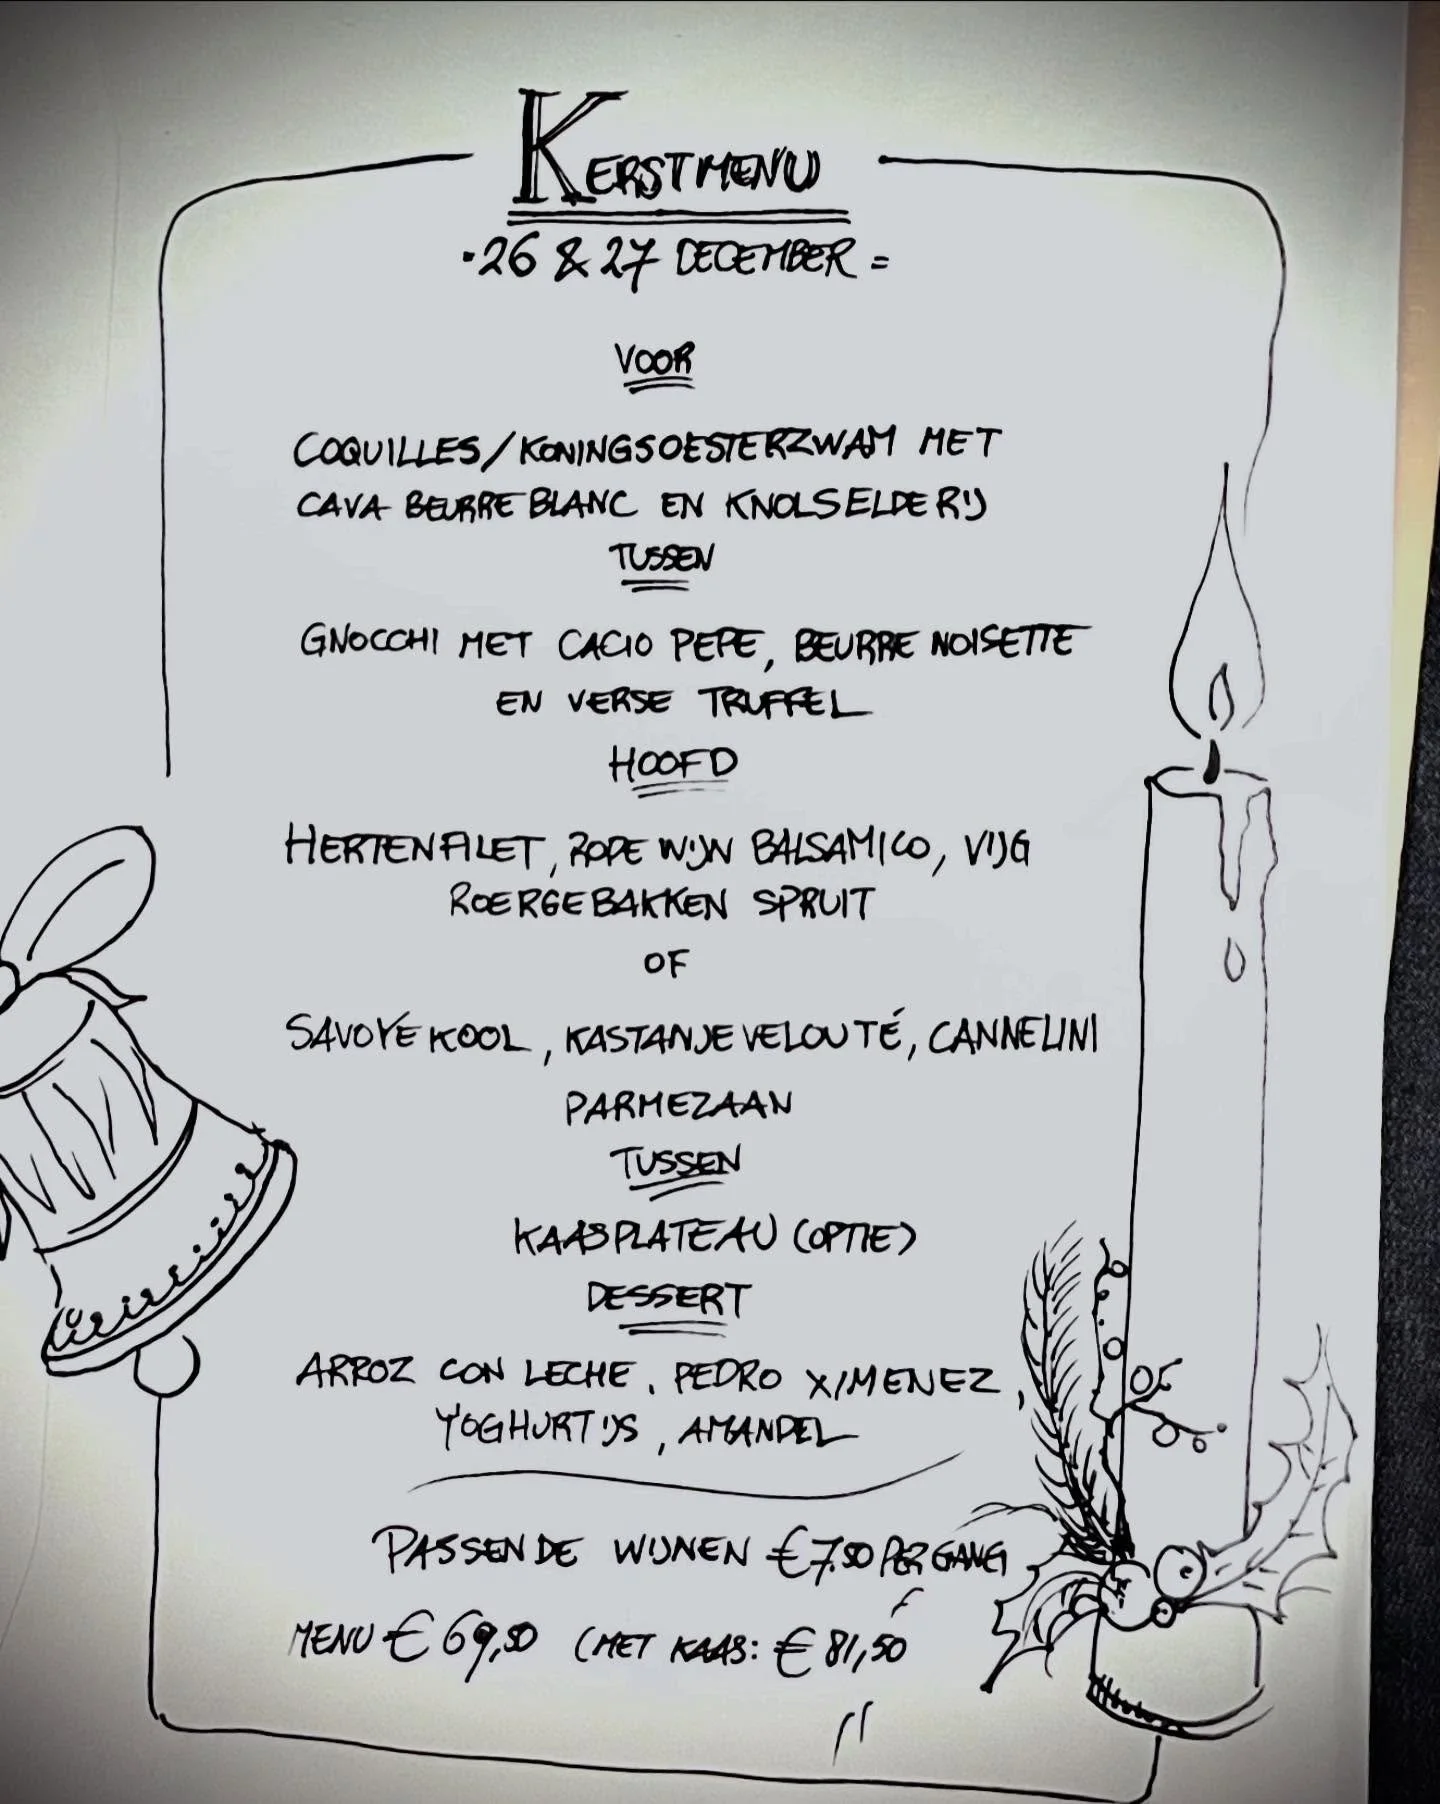 KERSTMENU
·26 & 27 DECEMBER =
VOOR
COQUILLES/KONINGSOESTERZWAM MET
CAVA BEURRE BLANC EN KNOLSELDERIJ
TUSSEN
GNOCCHI MET CACIO PEPE, BEURRE NOISETTE
EN VERSE TRUFFEL
HOOFD
HERTENFILET, RODE WIJN BALSAMICO, VIJG
ROERGEBAKKEN SPRUIT
OF
SAVOYE KOOL, KASTANJE VELOUTÉ, CANNELINI
PARMEZAAN
TUSSEN
KAASPLATEAU (OPTIE)
DESSERT
ARROZ CON LECHE, PEDRO XIMENEZ,
YOGHURTIJS, AMANDEL
PASSENDE WIJNEN €7.50 PER GANG
MENU € 69,50 (MET KAAS: € 81,50